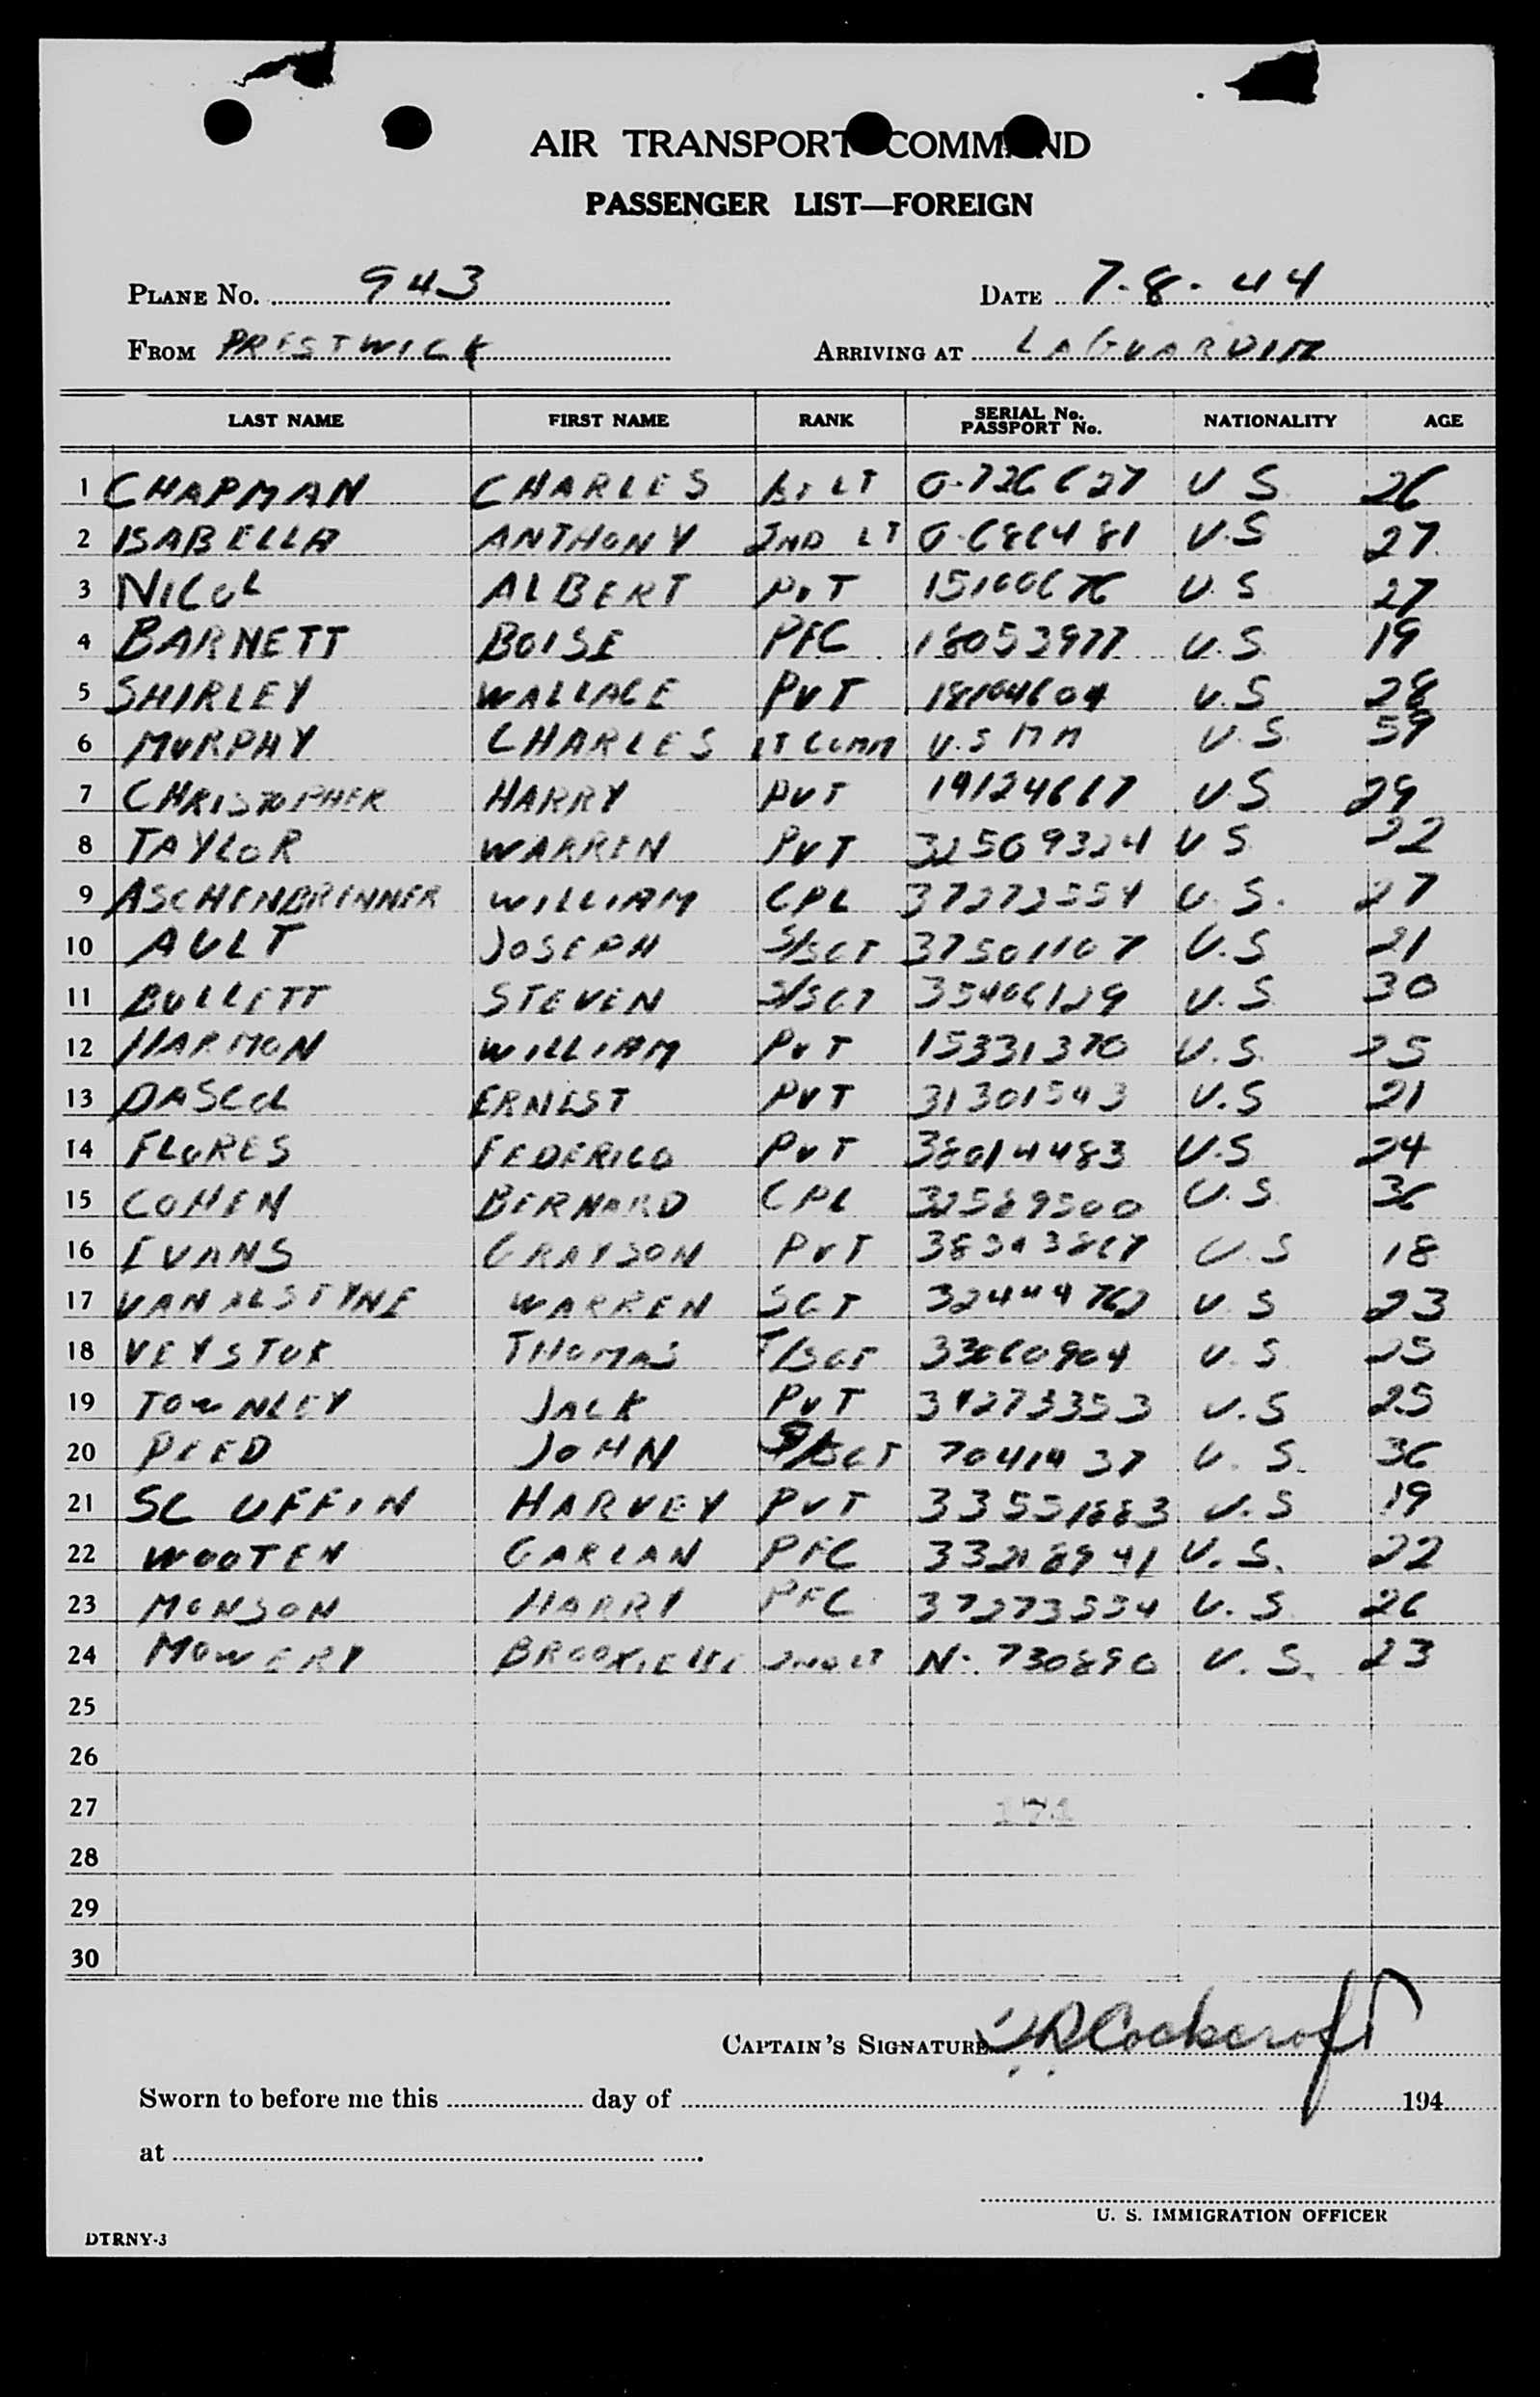 AIR TRANSPORT COMMAND
PASSENGER LIST—FOREIGN
PLANE No. 943 DATE 7-8-44
FROM PRESTWICK ARRIVING AT LAGUARDIA
LAST NAME FIRST NAME RANK SERIAL No. PASSPORT No. NATIONALITY AGE
1 CHAPMAN CHARLES LT O-726627 U S 26
2 ISABELLA ANTHONY 2ND LT O-686481 U.S 27
3 NICOL ALBERT PVT U.S 27
4 BARNETT BOISE PFC 18053977 U.S. 19
5 SHIRLEY WALLACE PVT 18104604 U.S 28
6 MURPHY CHARLES LT COMM U.S M M U.S. 59
7 CHRISTOPHER HARRY PVT 19124667 U S 29
8 TAYLOR WARREN PVT 32509324 U S 22
9 ASCHENBRENNER WILLIAM CPL U.S. 27
10 AULT JOSEPH S/SGT 37501107 U.S 21
11 BULLETT STEVEN S/SGT 35406129 U.S 30
12 HARMON WILLIAM PVT 15331370 U.S. 25
13 DASCOL ERNEST PVT 31301543 U.S 21
14 FLORES FEDERICO PVT 38014483 U.S 24
15 COHEN BERNARD CPL 32589500 U.S. 36
16 EVANS GRAYSON PVT U.S 18
17 VANALSTYNE WARREN SGT 32444762 U S 23
18 THOMAS T/SGT 33060904 U.S. 25
19 TOWNLEY JACK PVT 34273353 U.S 25
20 REED JOHN S/SGT 7041437 U.S. 36
21 SC UFFIN HARVEY PVT 33551883 U.S 19
22 WOOTEN GARLAN PFC 33218941 U.S. 22
23 MONSON HARRY PFC 37273534 U.S. 26
24 MOWERY 2ND LT N-730890 U.S. 23
25
26
27
28
29
30
CAPTAIN'S SIGNATURE Cockcroft
Sworn to before me this day of 194
at
U. S. IMMIGRATION OFFICER
DTRNY-3